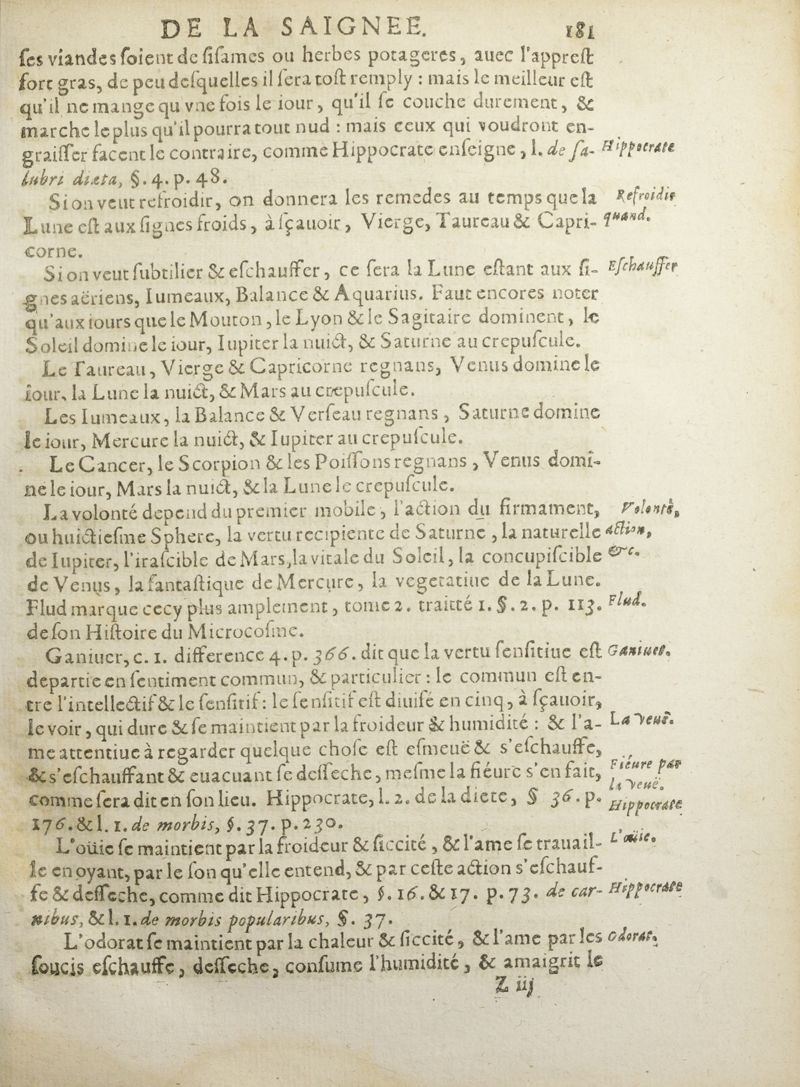 DE LA SAIGNEE. 181
ſes viandes ſoient de ſiſames ou herbes potageres, auec l'appreſt
fort gras, de peu deſquelles il ſera toſt remply : mais le meilleur eſt
qu'il ne mange qu vne fois le iour, qu'il ſe couche durement, &
marche le plus qu'il pourra tout nud : mais ceux qui voudront en-
graiſſer facent le contraire, comme Hippocrate enſeigne, l. de ſa- Hippocrate
lubri diæta, §. 4. p. 48.
Si on veut refroidir, on donnera les remedes au temps que la Refroidir
Lune eſt aux ſignes froids, à ſçauoir, Vierge, Taureau & Capri- quand.
corne.
Si on veut ſubtilier & eſchauffer, ce ſera la Lune eſtant aux ſi- Eſchauffer
gnes aëriens, Iumeaux, Balance & Aquarius. Faut encores noter
qu'aux iours que le Mouton, le Lyon & le Sagitaire dominent, le
Soleil domine le iour, Iupiter la nuict, & Saturne au crepuſcule.
Le Taureau, Vierge & Capricorne regnans, Venus domine le
iour, la Lune la nuict, & Mars au crepuſcule.
Les Iumeaux, la Balance & Verſeau regnans, Saturne domine
le iour, Mercure la nuict, & Iupiter au crepuſcule.
Le Cancer, le Scorpion & les Poiſſons regnans, Venus domi-
ne le iour, Mars la nuict, & la Lune le crepuſcule.
La volonté depend du premier mobile, l'action du firmament, Volonté,
ou huictieſme Sphere, la vertu recipiente de Saturne, la naturelle action,
de Iupiter, l'iraſcible de Mars, la vitale du Soleil, la concupiſcible &c.
de Venus, la fantaſtique de Mercure, la vegetatiue de la Lune.
Flud marque cecy plus amplement, tome 2. traitté 1. §. 2. p. 113. Flud.
de ſon Hiſtoire du Microcoſme.
Ganiuer, c. 1. difference 4. p. 366. dit que la vertu ſenſitiue eſt Ganiuer.
departie en ſentiment commun, & particulier : le commun eſt en-
tre l'intellectif & le ſenſitif : le ſenſitif eſt diuiſé en cinq, à ſçauoir,
le voir, qui dure & ſe maintient par la froideur & humidité : & l'a- La veuë.
me attentiue à regarder quelque choſe eſt eſmeuë & s'eſchauffe,
& s'eſchauffant & euacuant ſe deſſeche, meſme la fiéure s'en fait, Fieure par
la veuë.
comme ſera dit en ſon lieu. Hippocrate, l. 2. de la diete, § 36. p. Hippocrate
176. & l. 1. de morbis, §. 37. p. 230.
L'oüie ſe maintient par la froideur & ſiccité, & l'ame ſe trauail- L'oüie.
le en oyant, par le ſon qu'elle entend, & par ceſte action s'eſchauf-
fe & deſſeche, comme dit Hippocrate, §. 16. & 17. p. 73. de car- Hippocrate
nibus, & l. 1. de morbis popularibus, §. 37.
L'odorat ſe maintient par la chaleur & ſiccité, & l'ame par les Odorat.
ſoucis eſchauffe, deſſeche, conſume l'humidité, & amaigrit le
Z iij